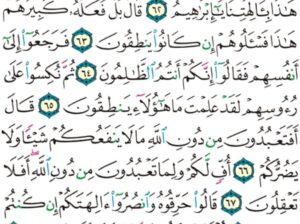 هَٰذَا بِـَٔالِهَتِنَا يَٰٓإِبْرَٰهِيمُ ٦٢ قَالَ بَلْ فَعَلَهُۥ كَبِيرُهُمْ
هَٰذَا فَسْـَٔلُوهُمْ إِن كَانُوا۟ يَنطِقُونَ ٦٣ فَرَجَعُوٓا۟ إِلَىٰٓ
أَنفُسِهِمْ فَقَالُوٓا۟ إِنَّكُمْ أَنتُمُ ٱلظَّٰلِمُونَ ٦٤ ثُمَّ نُكِسُوا۟ عَلَىٰ
رُءُوسِهِمْ لَقَدْ عَلِمْتَ مَا هَٰٓؤُلَآءِ يَنطِقُونَ ٦٥ قَالَ
أَفَتَعْبُدُونَ مِن دُونِ ٱللَّهِ مَا لَا يَنفَعُكُمْ شَيْـًٔا وَلَا
يَضُرُّكُمْ ٦٦ أُفٍّ لَّكُمْ وَلِمَا تَعْبُدُونَ مِن دُونِ ٱللَّهِ أَفَلَا
تَعْقِلُونَ ٦٧ قَالُوا۟ حَرِّقُوهُ وَٱنصُرُوٓا۟ ءَالِهَتَكُمْ إِن كُنتُمْ